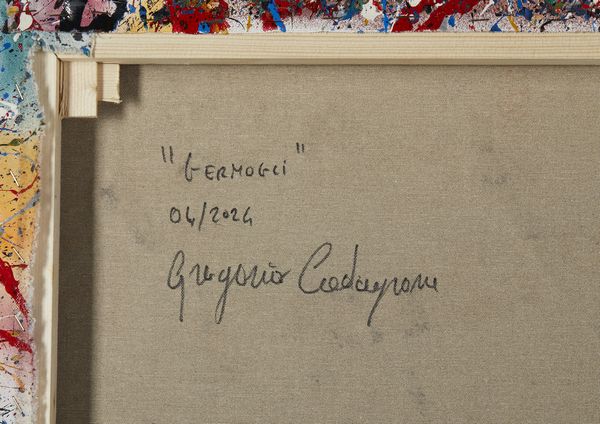 "GERMOGLI"
04/2024
Gregorio